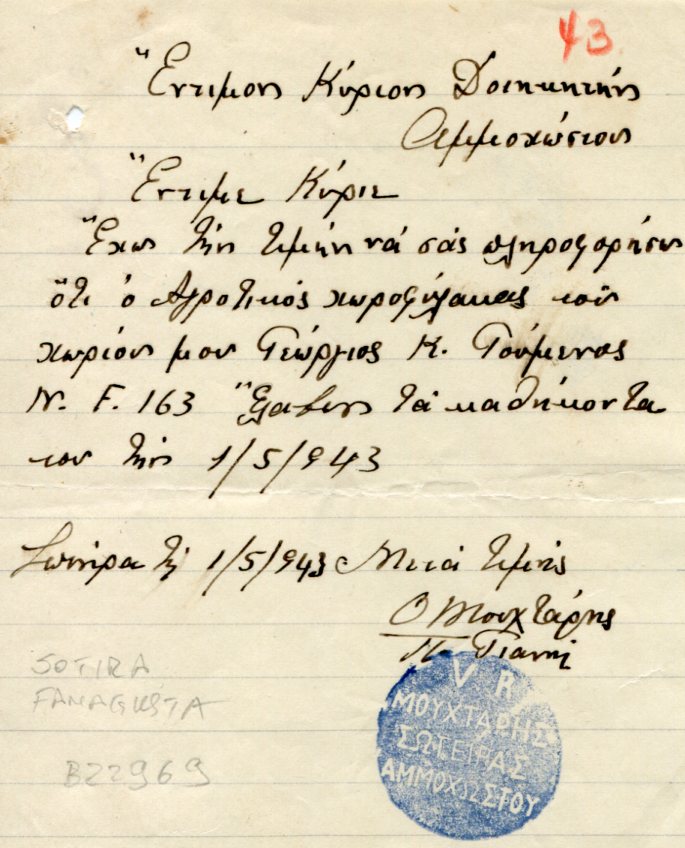 43
Ἔντιμον Κύριον Διοικητήν
Αμμοχώστου
Ἔντιμε Κύριε
Ἔχω τήν τιμήν νά σάς πληροφορήσω
ὅτι ὁ Αγροτικός χωροφύλακας τού
χωρίου μου Γεώργιος Κ. Τούμενας
N. F. 163 Ἔλαβεν τά καθήκοντα
του τήν 1/5/943
Σωτήρα τῇ 1/5/943 Μετά τιμής
Ο Μουχτάρης
Π. Γιαννή
V R
ΜΟΥΧΤΑΡΗΣ
ΣΩΤΕΙΡΑΣ
ΑΜΜΟΧΩΣΤΟΥ
SOTIRA
FAMAGUSTA
B22969